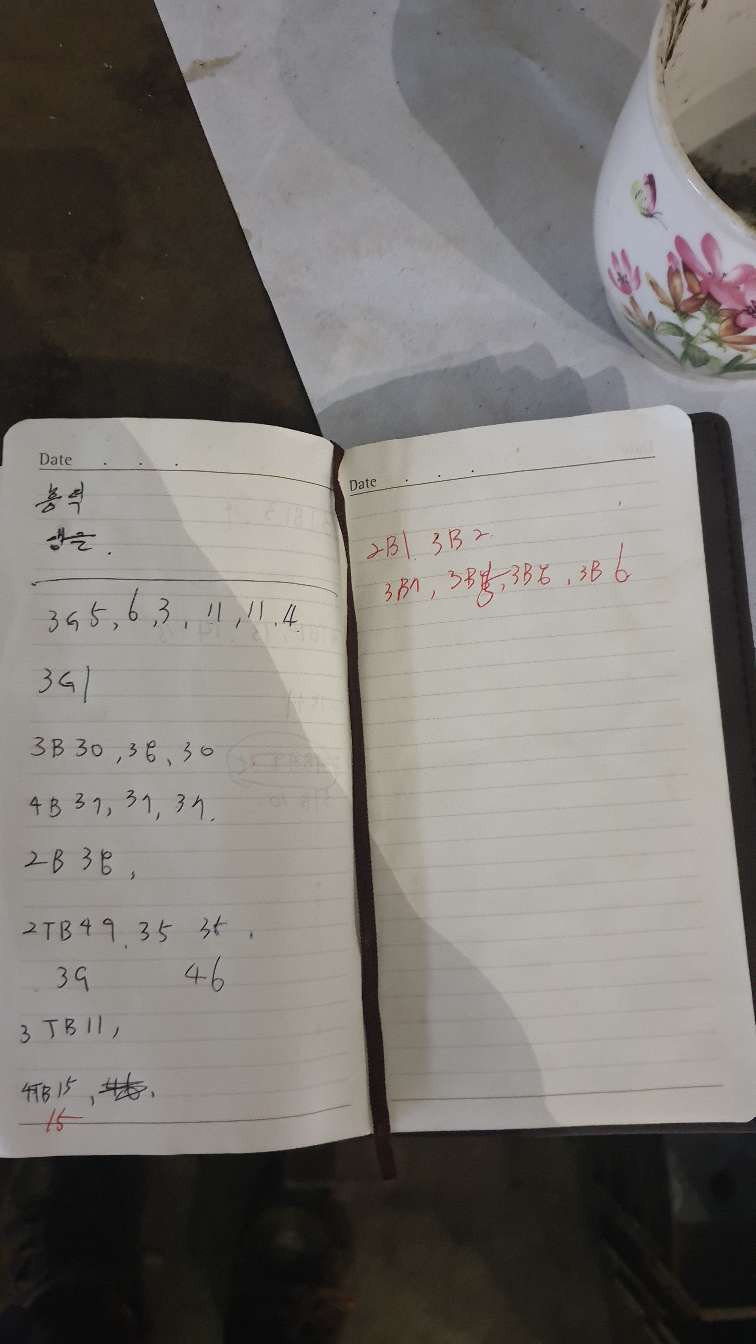 Date . . .
용억
생은.
3G 5, 6, 3, 11, 11, 4
3G1
3B 30, 38, 30
4B 37, 37, 37.
2B 38,
2TB 49, 35 35.
39 46
3 TB 11,
4TB 15,
15
Date . . .
2B1, 3B2
3B7, 3B8, 3B8, 3B6